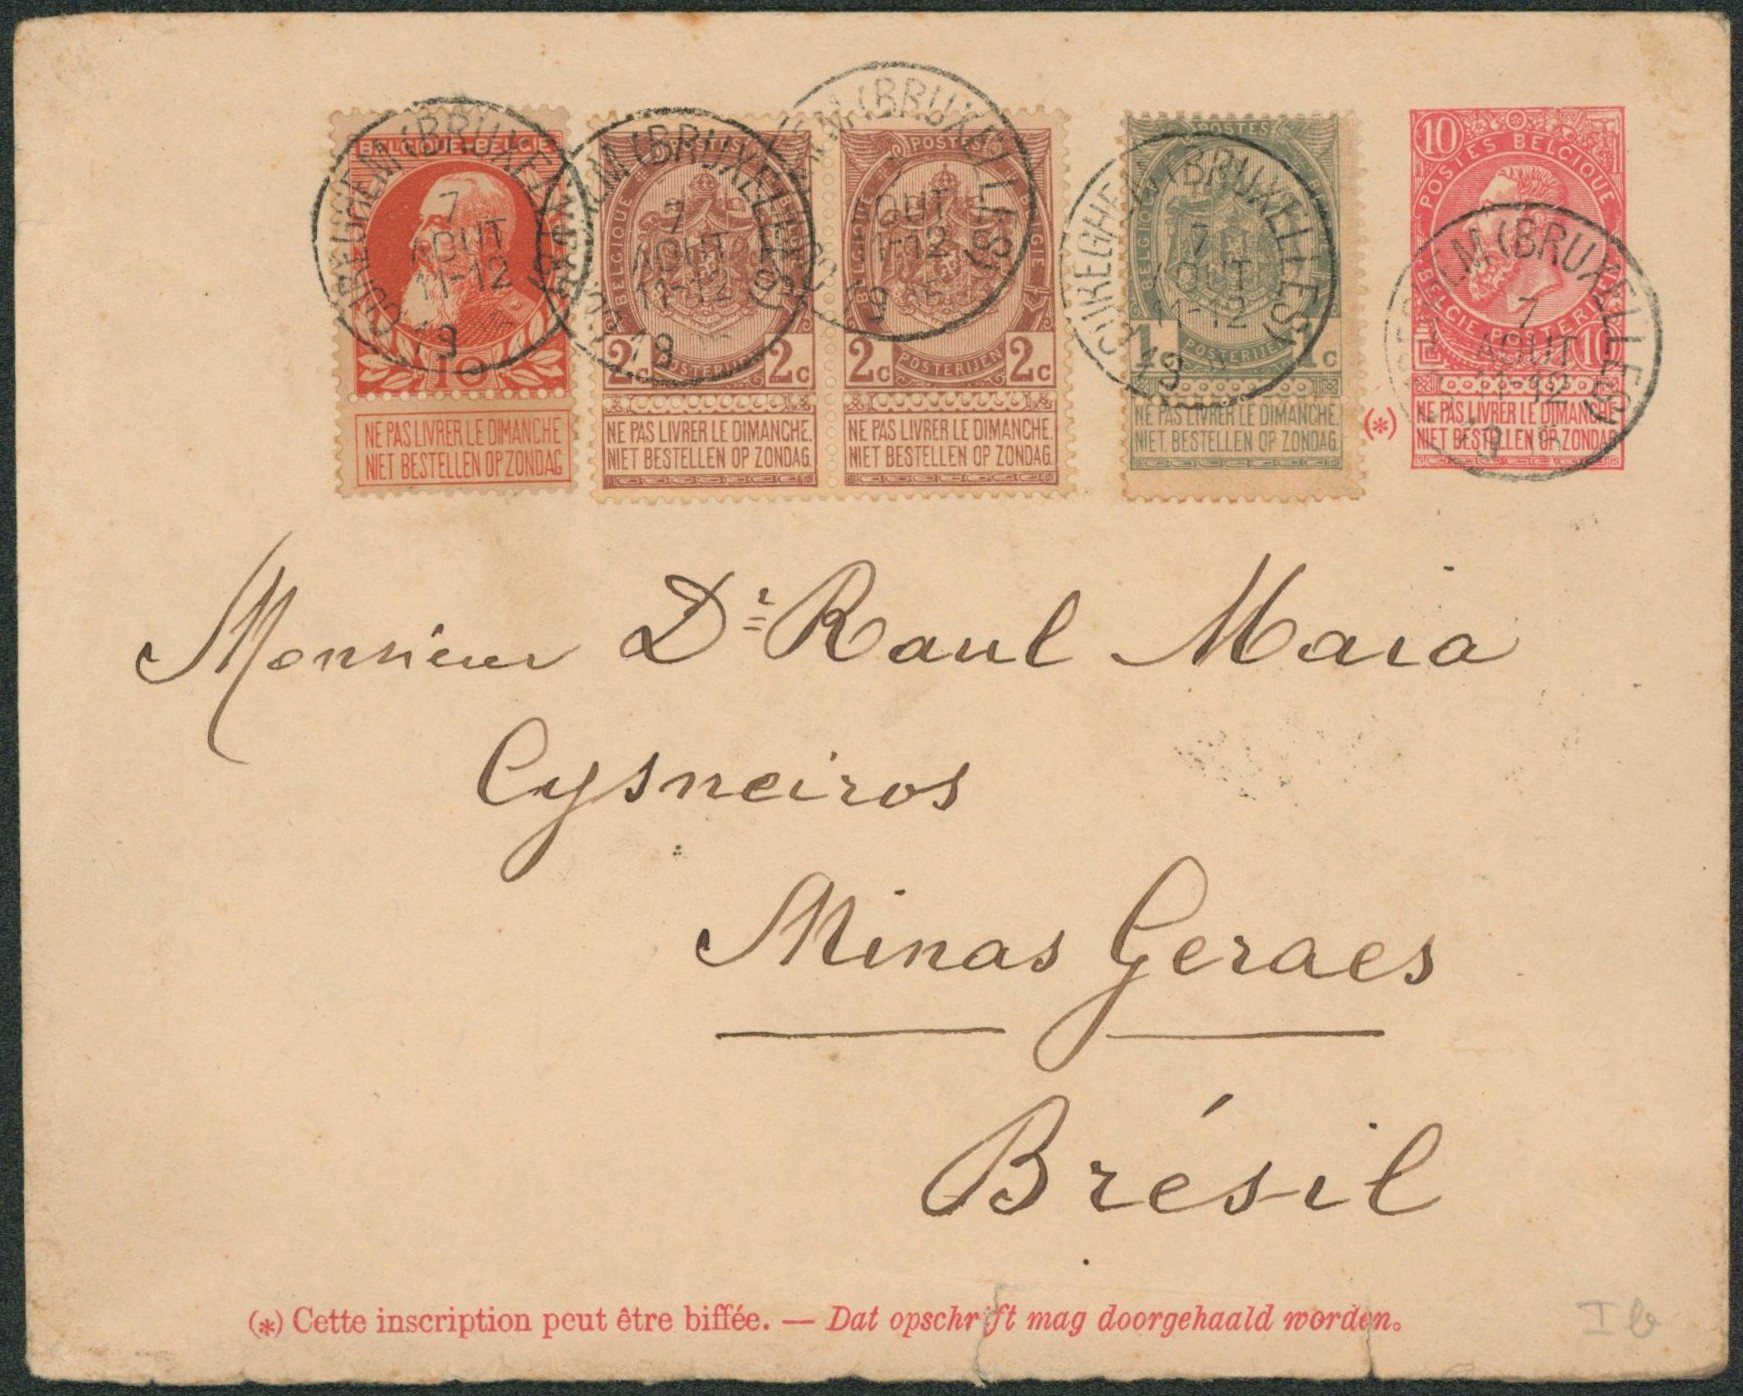 CUREGHEM (BRUXELLES)
7
AOUT
11-12
19
BELGIQUE-BELGIË
10
NE PAS LIVRER LE DIMANCHE
NIET BESTELLEN OP ZONDAG
CUREGHEM (BRUXELLES)
7
AOUT
11-12
19
POSTES
BELGIQUE
BELGIË
POSTERIJEN
2c 2c
NE PAS LIVRER LE DIMANCHE.
NIET BESTELLEN OP ZONDAG.
(BRUXELLES)
AOUT
11-12
POSTES
BELGIQUE
BELGIË
POSTERIJEN
2c 2c
NE PAS LIVRER LE DIMANCHE.
NIET BESTELLEN OP ZONDAG.
CUREGHEM (BRUXELLES)
7
AOUT
11-12
19
POSTES
BELGIQUE
POSTERIJEN
1c 1c
NE PAS LIVRER LE DIMANCHE.
NIET BESTELLEN OP ZONDAG.
(*)
10
POSTES BELGIQUE
BELGIE POSTERIJEN
10
(BRUXELLES)
7
AOUT
11-12
NE PAS LIVRER LE DIMANCHE
NIET BESTELLEN OP ZONDAG
Monsieur Dr Raul Maia
Cysneiros
Minas Geraes
Brésil
(*) Cette inscription peut être biffée. — Dat opschrift mag doorgehaald worden.
I b